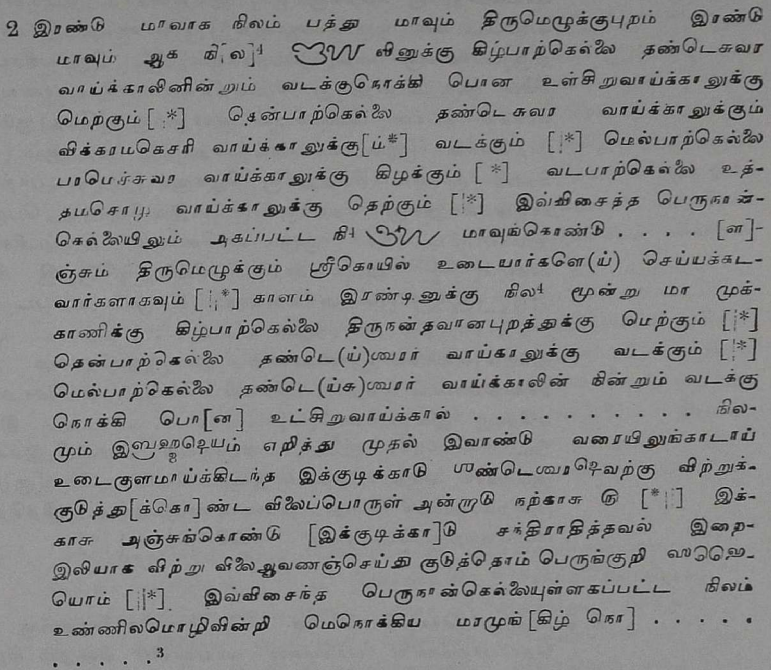 2 இரண்டு மாவாக நிலம் பத்து மாவும் திருமெழுக்குபுறம் இரண்டு
மாவும் ஆக நி[ல]⁴ வினுக்கு கிழ்பாற்கெல்லை தண்டெசுவர
வாய்க்காலினின்றும் வடக்குநொக்கி பொன உள்சிறுவாய்க்காலுக்கு
மெற்கும் [|*] தென்பாற்கெல்லை தண்டெசுவர வாய்க்காலுக்கும்
விக்கரமகெசரி வாய்க்காலுக்கு[ம்*] வடக்கும் [|*] மெல்பாற்கெல்லை
பரமெச்சுவர வாய்க்காலுக்கு கிழக்கும் [|*] வடபாற்கெல்லை உத்-
தமசொழ வாய்க்காலுக்கு தெற்கும் [|*] இவ்விசைத்த பெருநான்-
கெல்லையிலும் அகப்பட்ட நி⁴ மாவுங்கொண்டு . . . . [ள]-
ஞ்சும் திருமெழுக்கும் ஸ்ரீகொயில் உடையார்களெ(ய்) செய்யக்கட-
வார்களாகவும் [|*] காளம் இரண்டினுக்கு நில⁴ மூன்று மா முக்-
காணிக்கு கிழ்பாற்கெல்லை திருநன்தவானபுறத்துக்கு மெற்கும் [|*]
தென்பாற்கெல்லை தண்டெ(ய்)ஶ்வரர் வாய்காலுக்கு வடக்கும் [|*]
மெல்பாற்கெல்லை தண்டெ(ய்சு)ஶ்வரர் வாய்க்காலின் நின்றும் வடக்கு
நொக்கி பொ[ன] உட்சிறுவாய்க்கால் . . . . . . . . . . நில-
மும் எறித்து முதல் இவாண்டு வரையிலுங்காடாய்
உடைகுளமாய்க்கிடந்த இக்குடிக்காடு விற்றுக்-
குடுத்து[க்கொ]ண்ட விலைப்பொருள் அன்றாடு நற்காசு ௫ [|*] இக்-
காசு அஞ்சுங்கொண்டு [இக்குடிக்கா]டு சந்திராதித்தவல் இறை-
இலியாக விற்று விலைஆவணஞ்செய்து குடுத்தொம் பெருங்குறி ஸபை-
யொம் [||*] இவ்விசைந்த பெருநான்கெல்லையுள்ளகப்பட்ட நிலம்
உண்ணிலமொழிவின்றி மெநொக்கிய மரமுங் [கிழ் நொ] . . . . .
. . . . .³